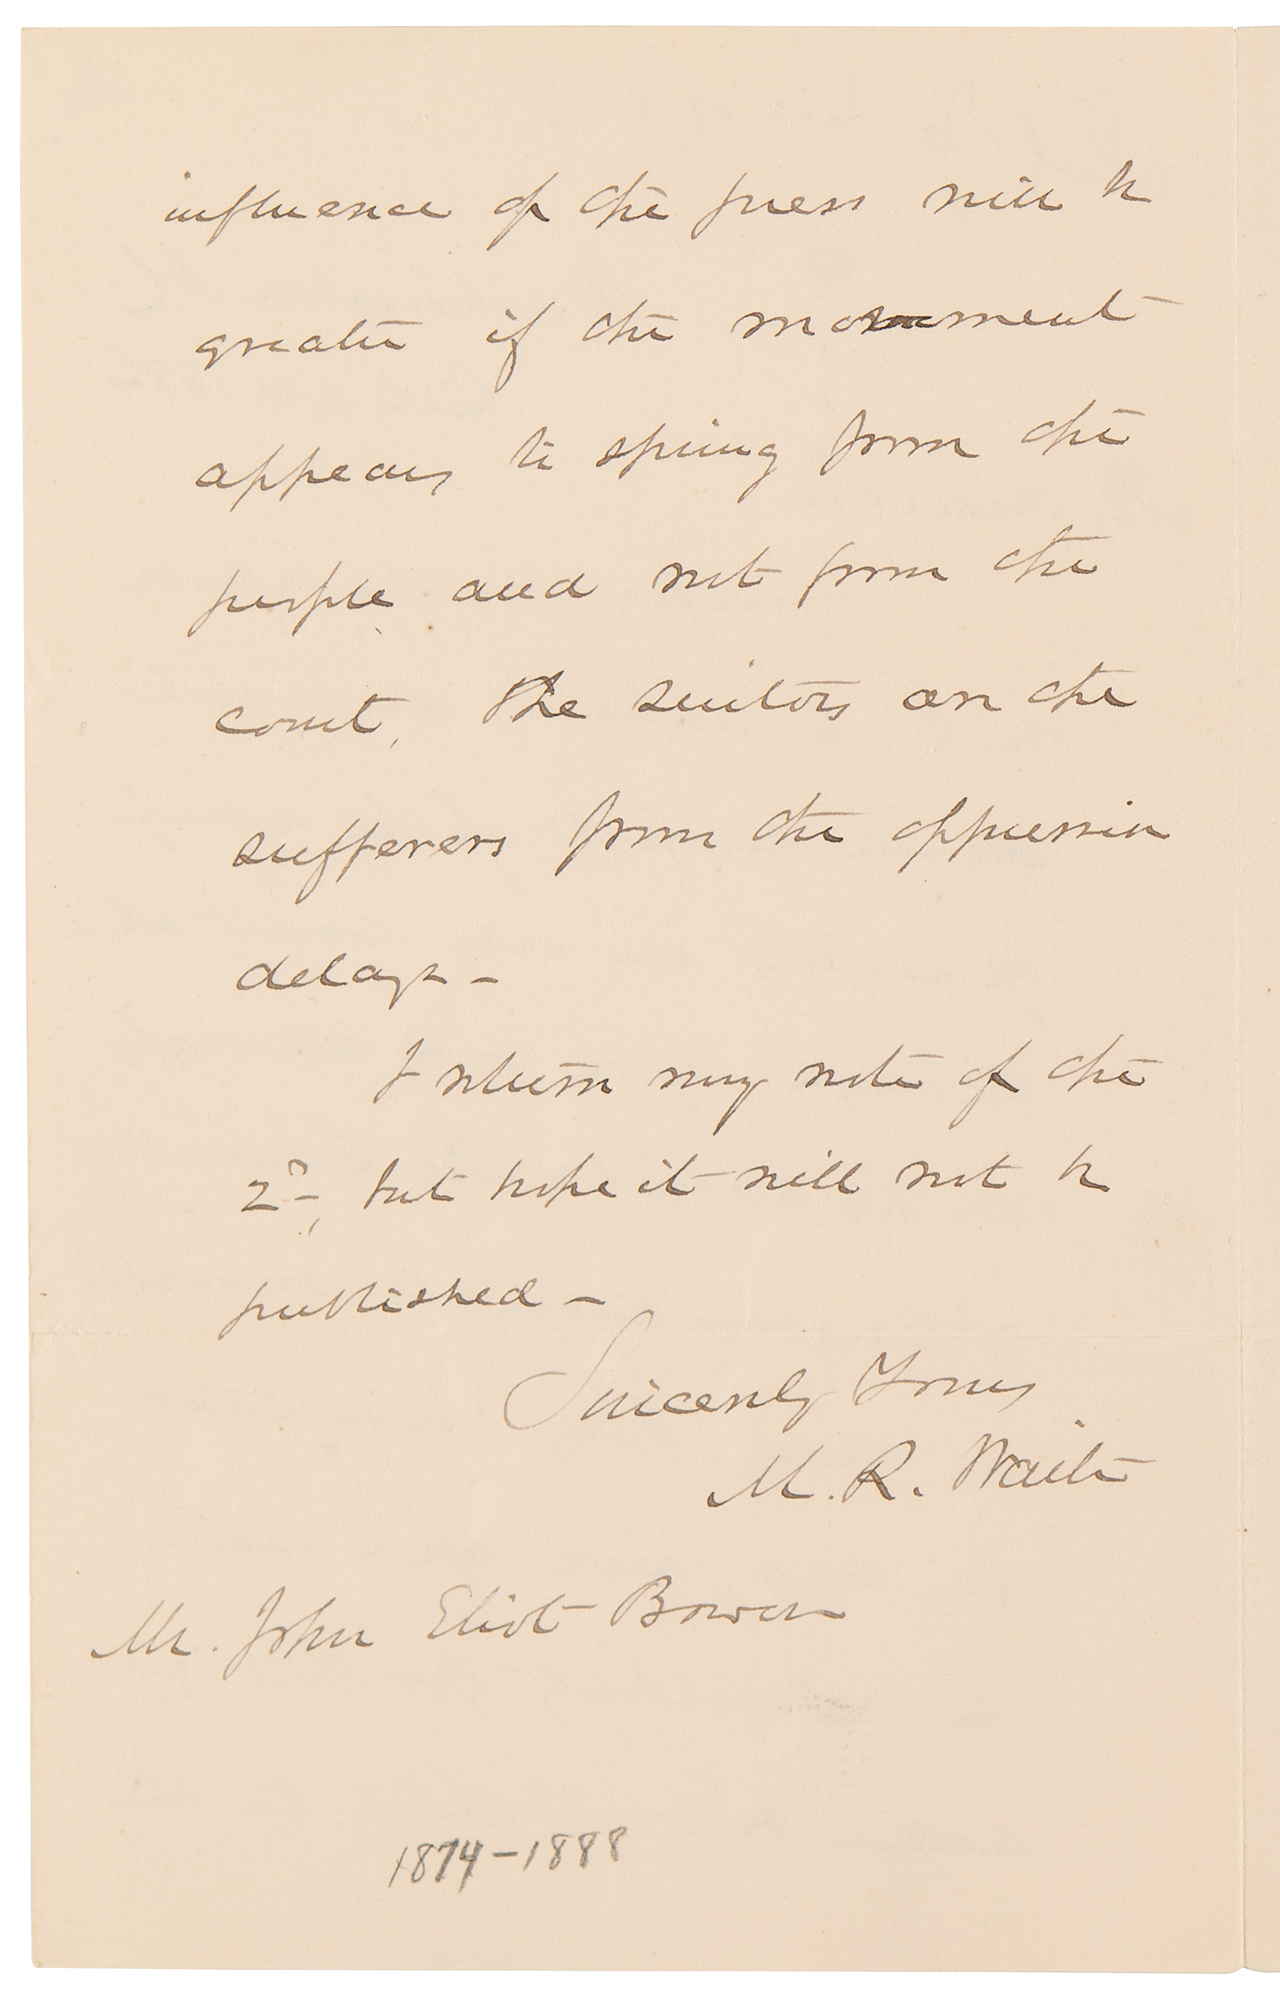 influence of the press will be
greater if the movement
appears to spring from the
people and not from the
court. The suitors are the
sufferers from the oppressive
delays –
I return my note of the
2d, but hope it will not be
published –
Sincerely Yours
M. R. Waite
Mr. John Eliot Bowen
1874–1888